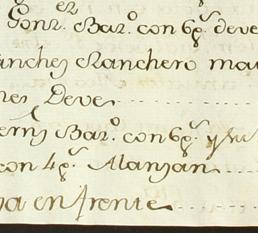 Gonz.^er Bar.^o con 6 g.^s deve
anches Ranchero ma
nes, Deve
Bar.^o con 6 g.^s y su
con 4 g.^s Alanzan
na en frente